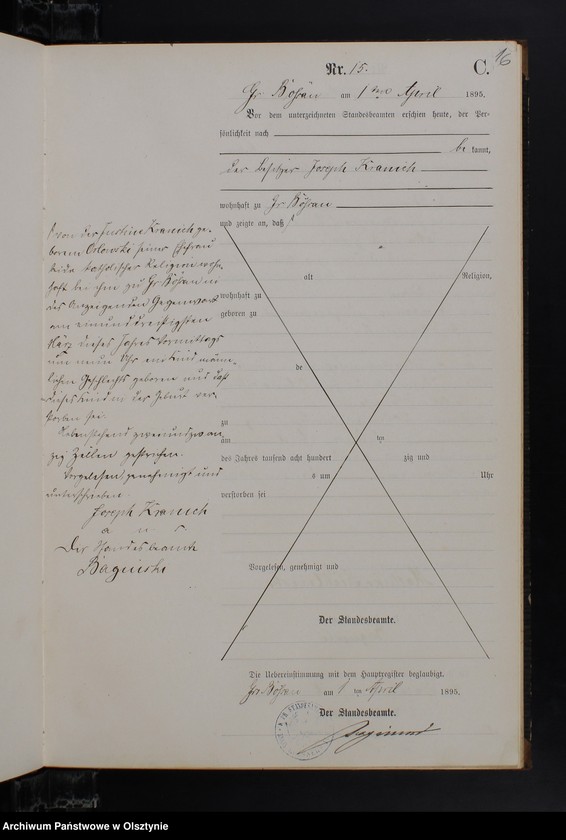 16
Nr. 15. C.
Gr. Kösen am 1ten April 1895.
Vor dem unterzeichneten Standesbeamten erschien heute, der Per-
sönlichkeit nach
be kannt,
der Besitzer Joseph Kranich
wohnhaft zu Gr. Kösen
und zeigte an, daß
von der Justine Kranich ge-
borenen Orlowski seiner Ehefrau
beide katholischer Religion wohn-
haft bei ihm zu Gr. Kösen in
des Anzeigenden Gegenwart
am einunddreißigsten
März dieses Jahres Vormittags
um neun Uhr ein Kind männ-
lichen Geschlechts geboren und daß
dieses Kind in der Geburt ver-
storben sei.
Nebenstehend zweiundzwan-
zig Zeilen gestrichen.
Vorgelesen, genehmigt und
unterschrieben
Joseph Kranich
Der Standesbeamte
alt Religion,
wohnhaft zu
geboren zu
de
zu
am ten
des Jahres tausend acht hundert zig und
um Uhr
verstorben sei
Vorgelesen, genehmigt und
Der Standesbeamte.
Die Uebereinstimmung mit dem Hauptregister beglaubigt.
Gr. Kösen am 1 ten April 1895.
Der Standesbeamte.
Archiwum Państwowe w Olsztynie